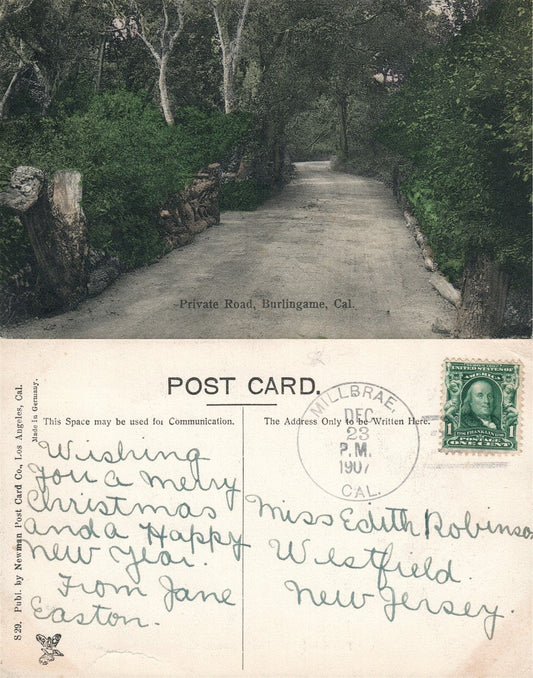 Private Road, Burlingame, Cal.
POST CARD.
This Space may be used for Communication.
The Address Only to be Written Here.
S 29. Publ. by Newman Post Card Co., Los Angeles, Cal.
Made in Germany.
MILLBRAE,
DEC
23
P.M.
1907
CAL.
UNITED STATES OF
AMERICA
1 1
FRANKLIN
POSTAGE
ONE CENT
Wishing
you a merry
Christmas
and a Happy
New Year.
From Jane
Easton.
Miss Edith Robinson
Westfield.
New Jersey.